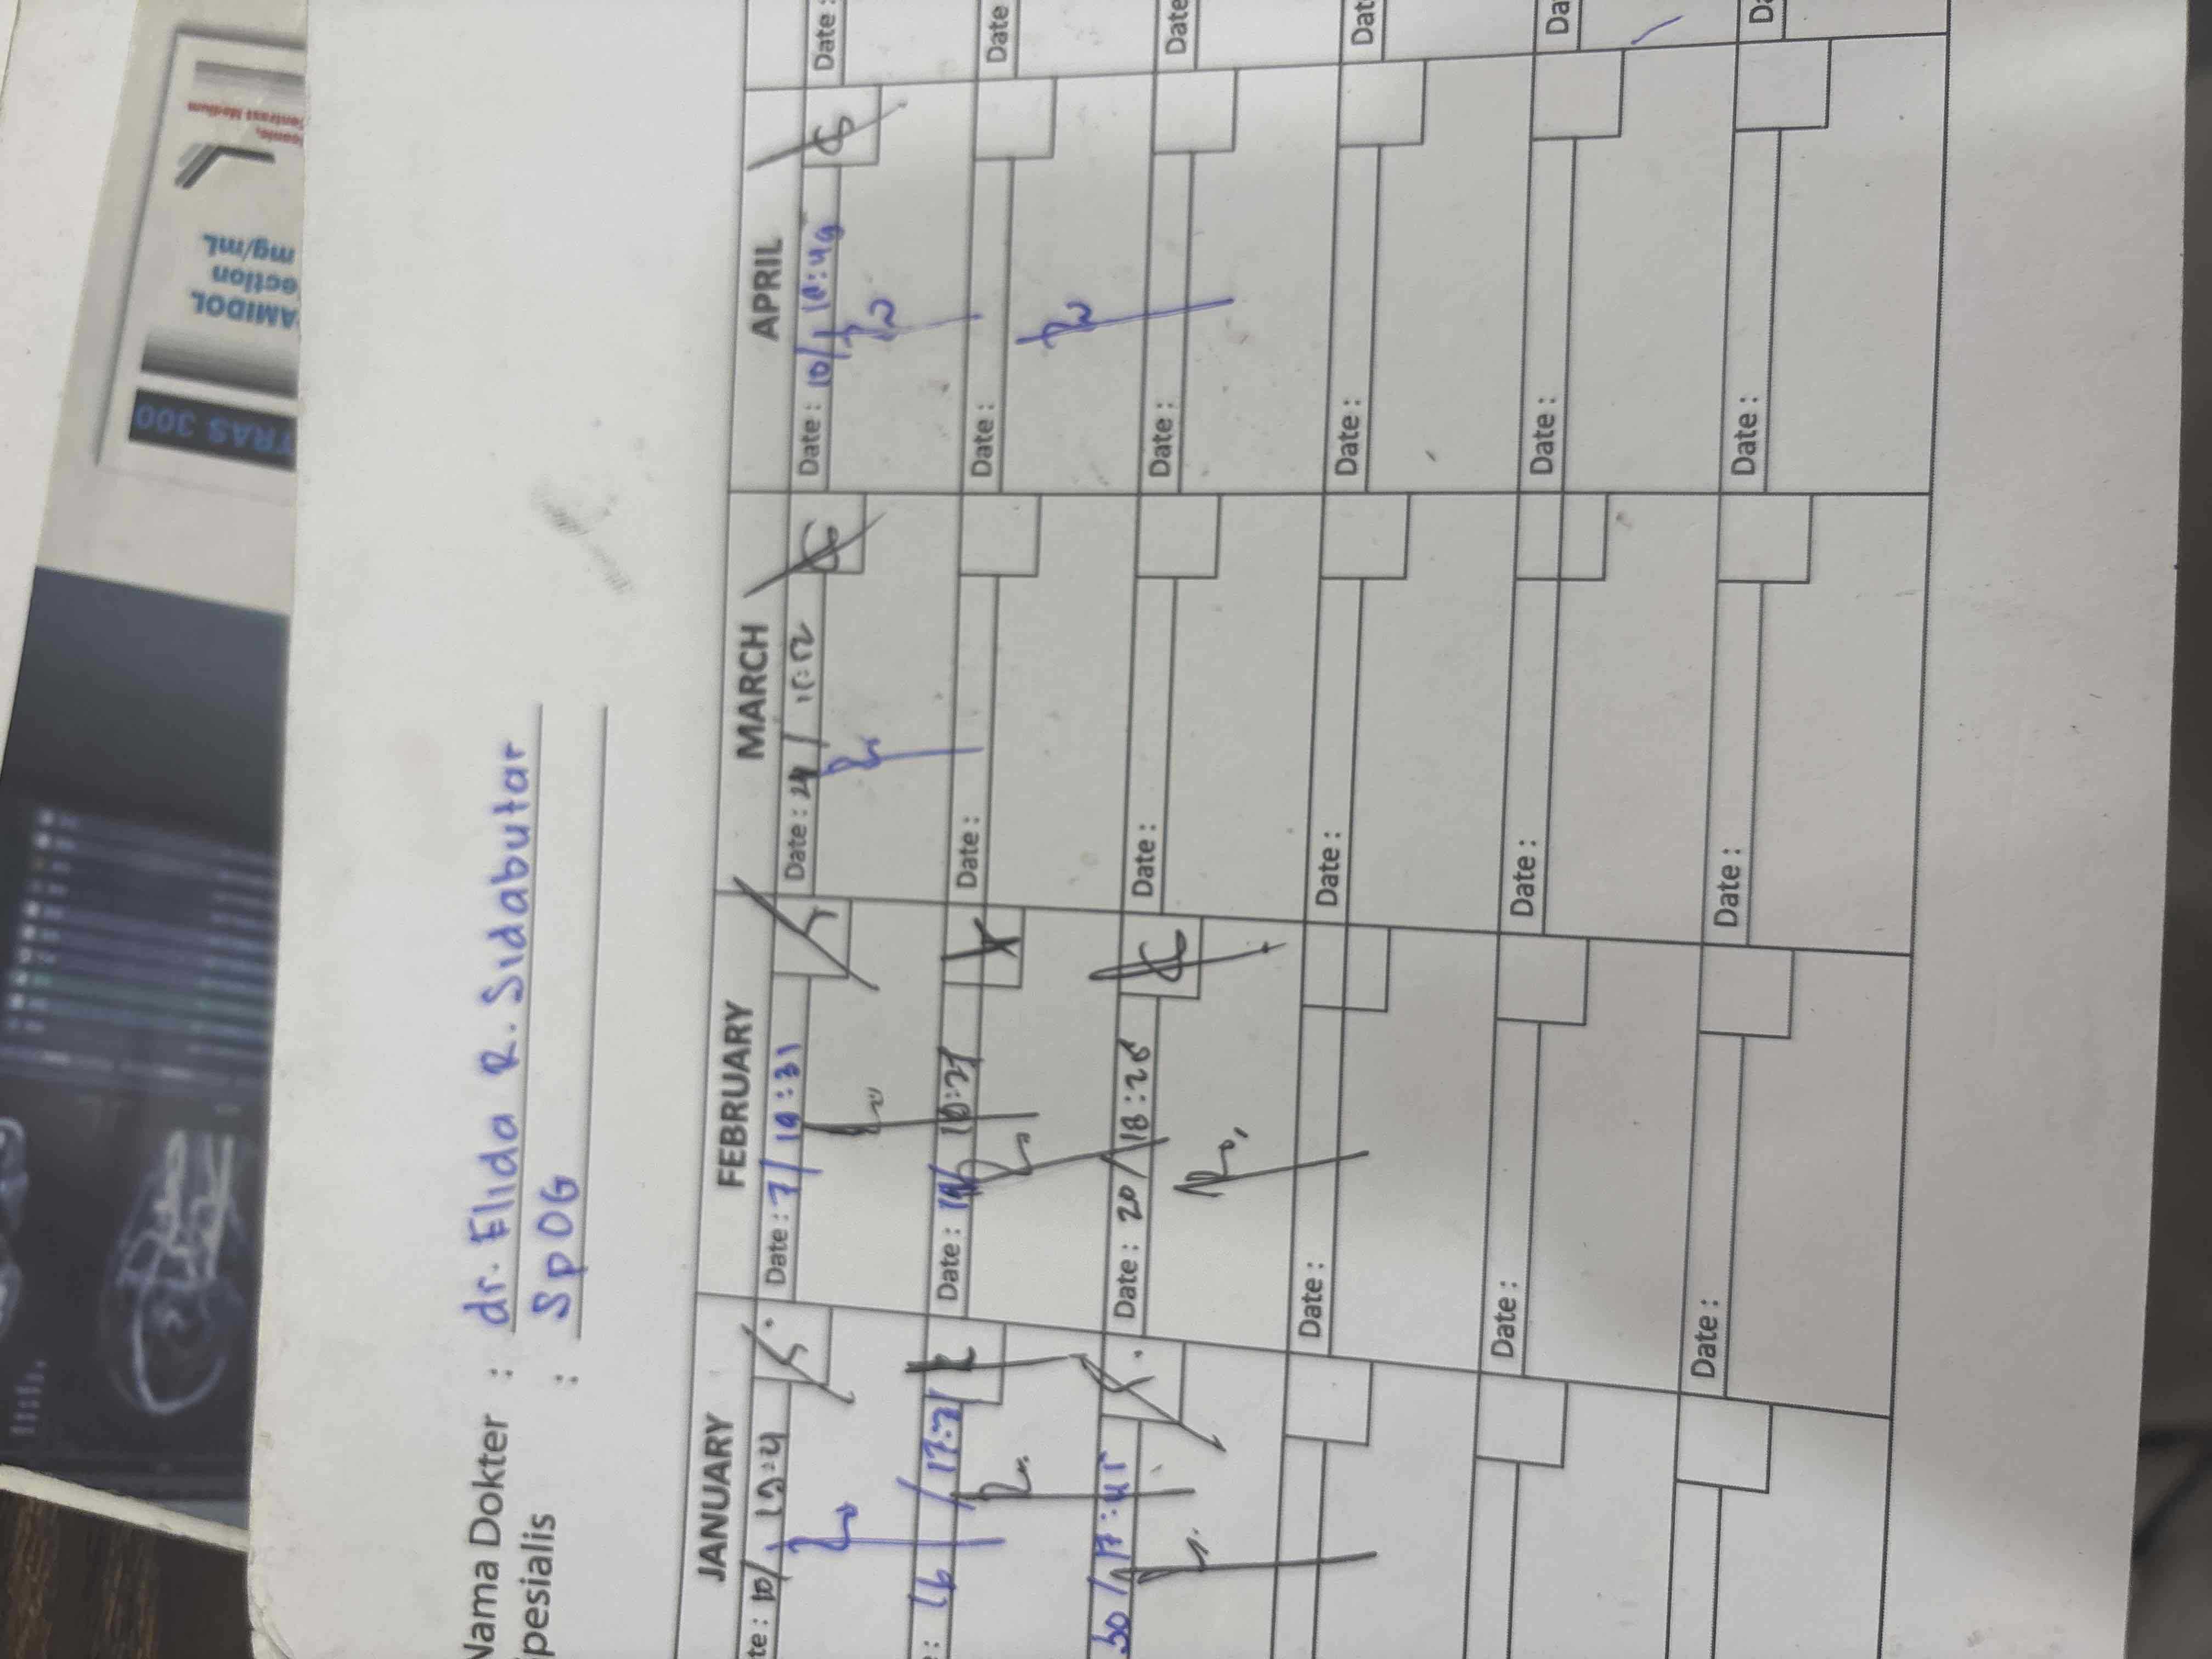 Nama Dokter : dr. Elida R. Sidabutar
pesialis : SpOG
JANUARY FEBRUARY MARCH APRIL
te : 10/ Date : 7/ 19:31 Date : 24/ 15:52 Date : 10/ 18:49 Date :
: 16 / Date : Date : Date : Date
30/ 17:45 Date : 20/ 18:26 Date : Date : Date
Date : Date : Date : Dat
Date : Date : Date : Da
Date : Date : Date : Da
TRAS 300
AMIDOL
ection
mg/mL
Contrast Medium